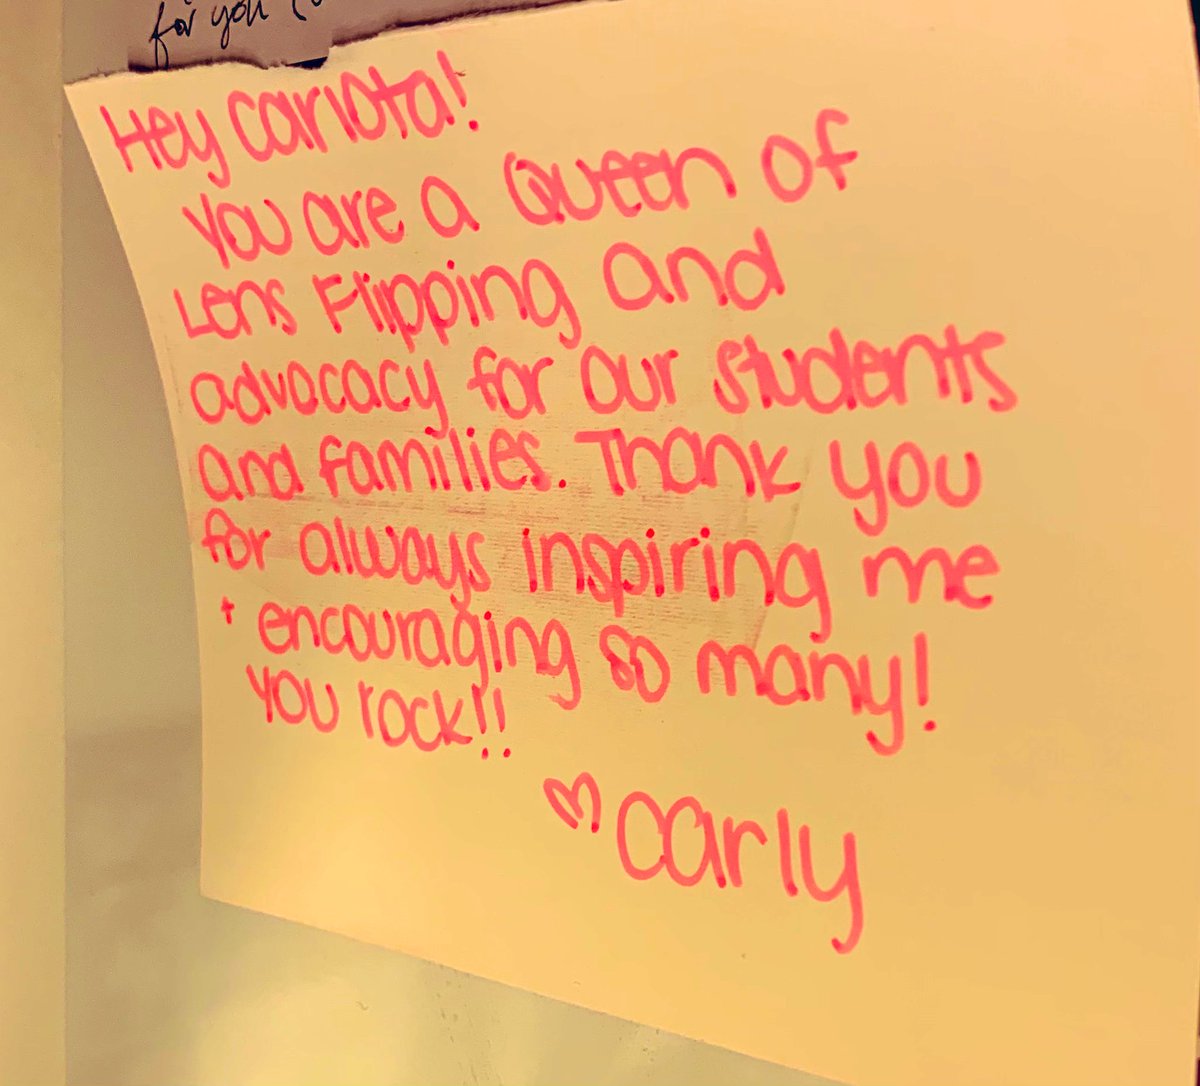 for you
Hey Carlota!
You are a Queen of
Lens Flipping and
advocacy for our students
and families. Thank you
for always inspiring me
+ encouraging so many!
You rock!!
♡ Carly